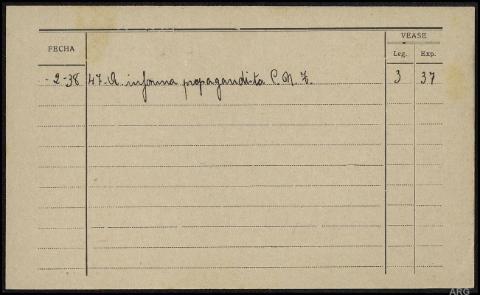 VEASE
FECHA Leg. Exp.
-2-38 47.A. informa propagandita C.N.T. 3 37
ARG